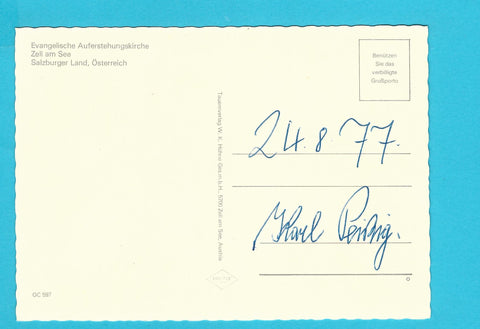 Evangelische Auferstehungskirche
Zell am See
Salzburger Land, Österreich
Benützen
Sie das
verbilligte
Grußporto
Tauernverlag W. K. Hühne Ges.m.b.H., 5700 Zell am See, Austria
24. 8. 77.
Karl
GC 597